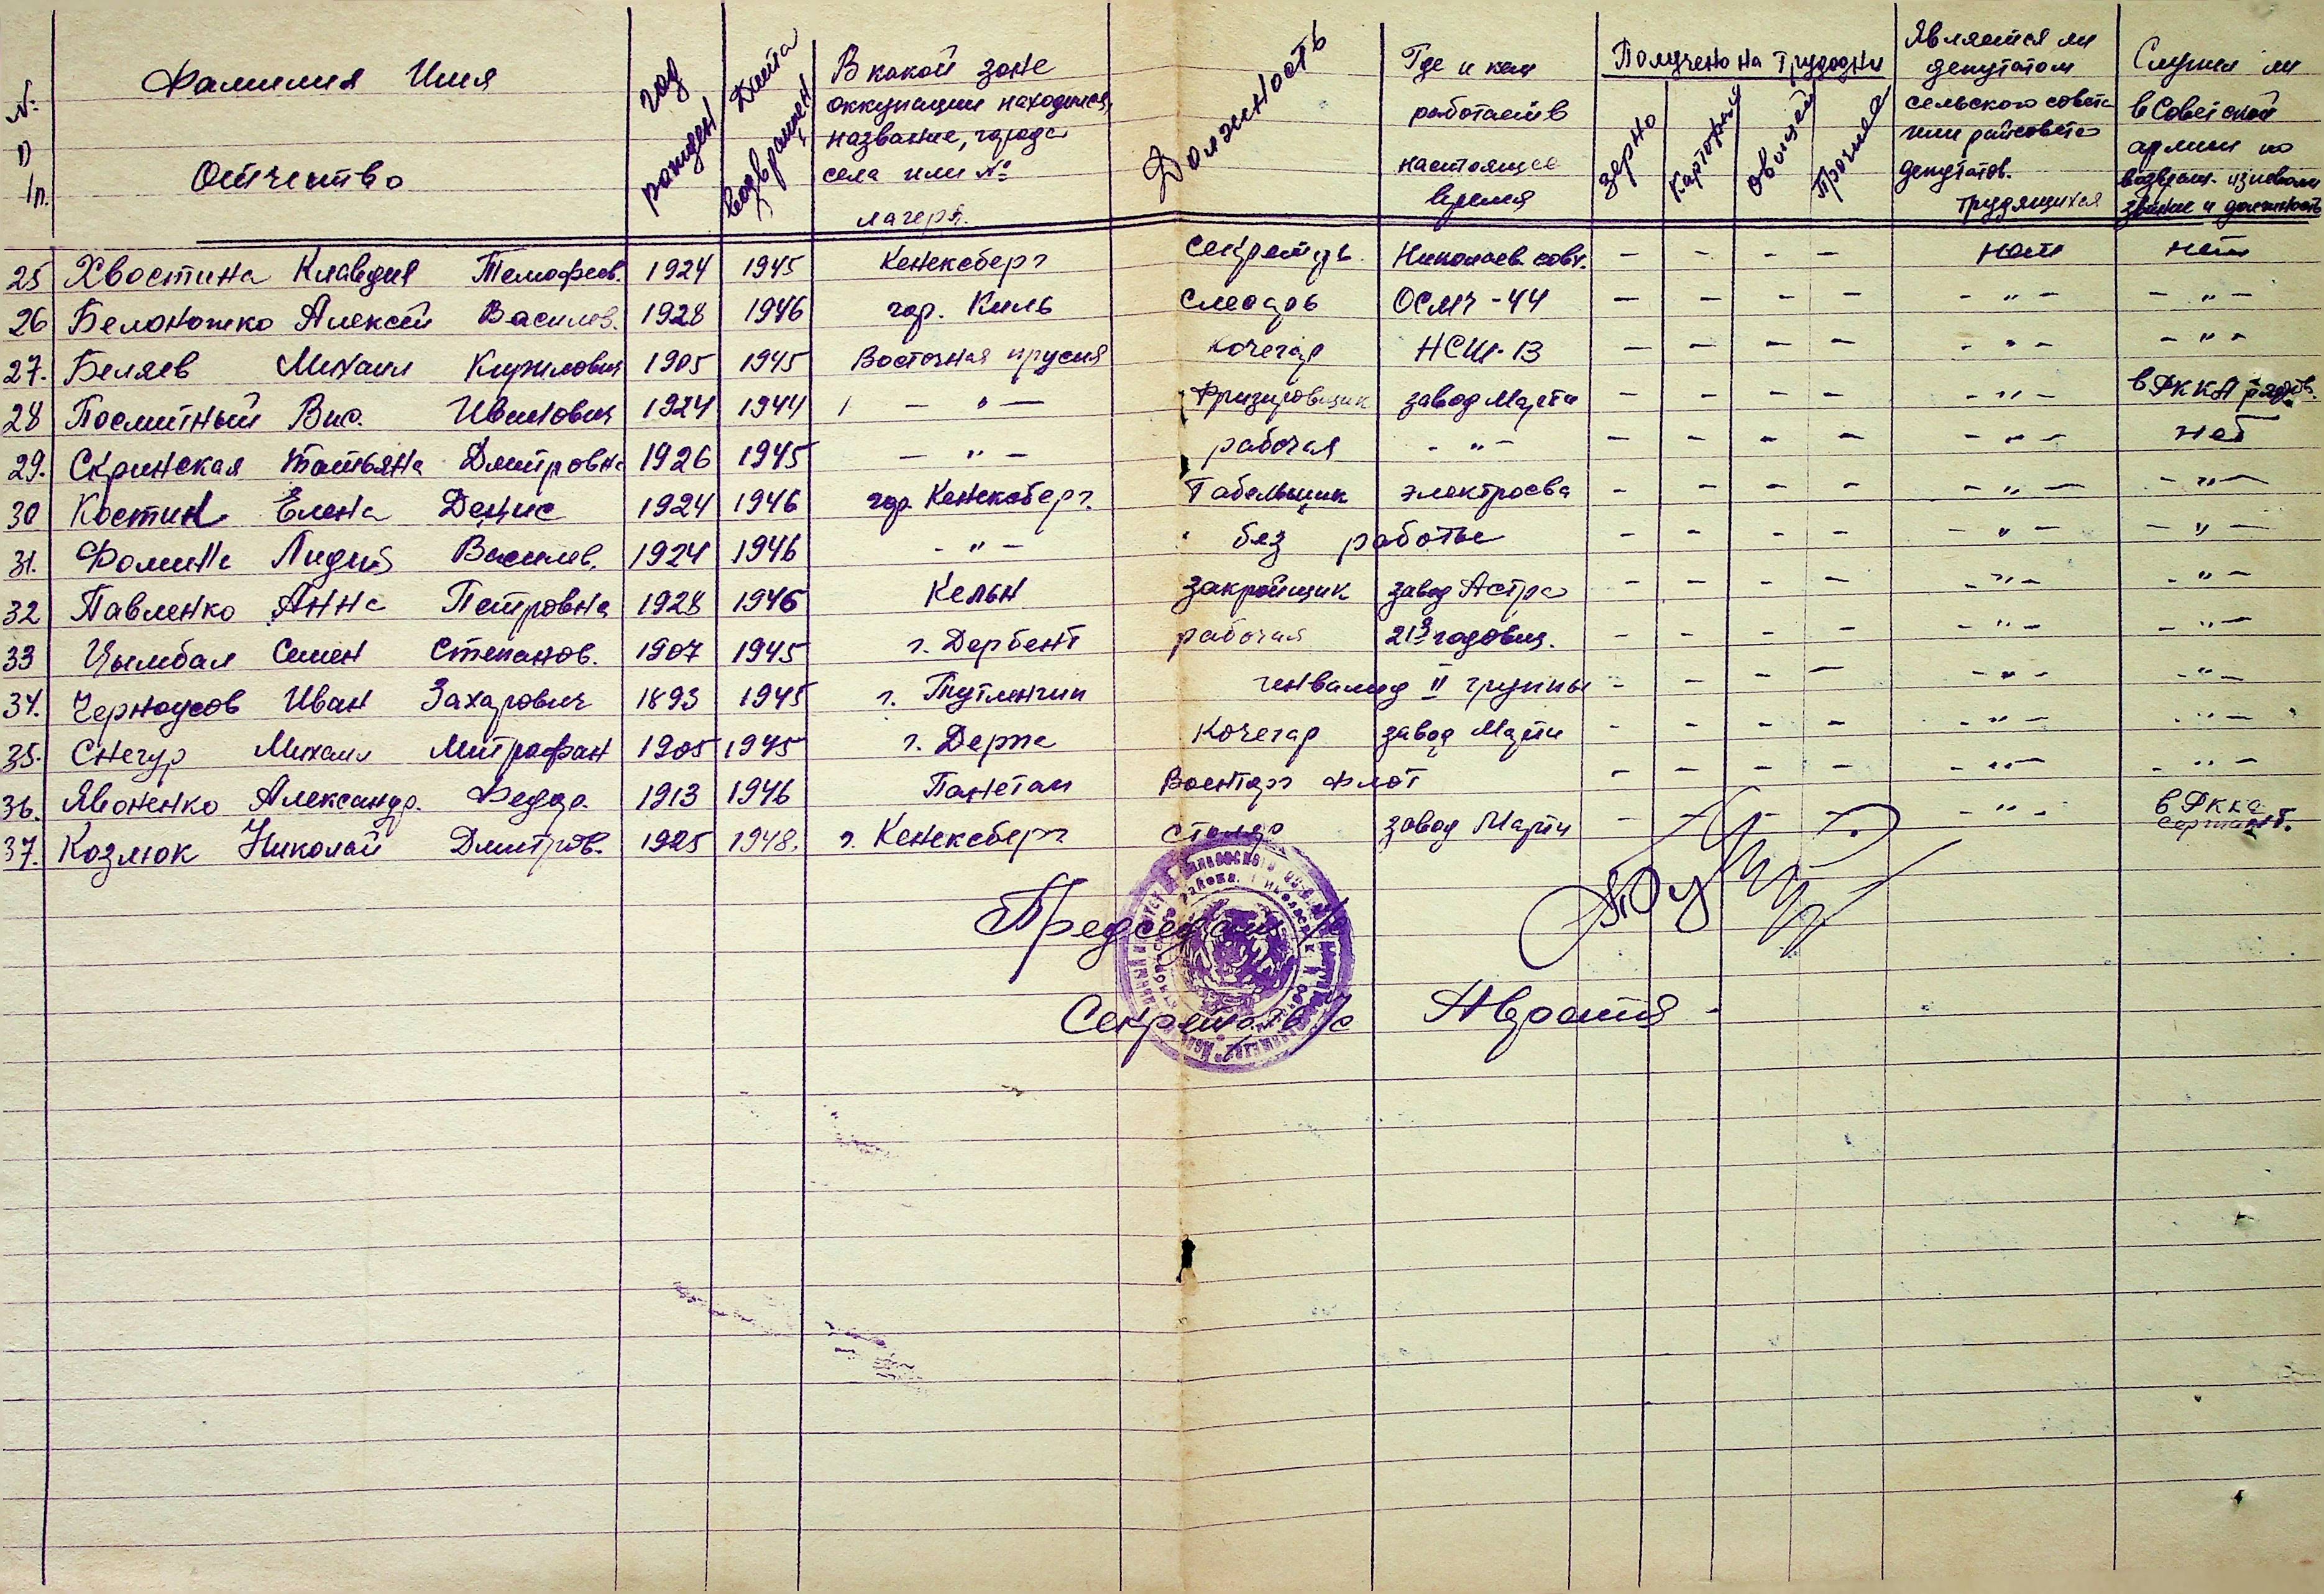 № п/п. Фамилия Имя Отчество год рожден Дата возвращен В какой зоне оккупации находился, название, города села или № лагеря. Должность Где и кем работает в настоящее время Получено на трудодни зерно Картофель овощей Прочиее Является ли депутатом сельского совета или райсовета депутатов. трудящихся Служил ли в Советской армии по возвращ. из неволи звание и должность
25 Хвостина Клавдия Темофеев. 1924 1945 Кенексберг секретарь Николаев. совх. - - - - нет нет
26 Белоножко Алексей Василев. 1928 1946 гор. Киль слесарь ОСМЧ-44 - - - - - " - - " -
27. Беляев Михаил Кирилович 1905 1945 Восточная прусия кочегар НСШ-13 - - - - - " - - " -
28 Посмитный Вас. Иванович 1924 1944 - " - Фризировщик завод Марти - - - - - " - в РККА рядов.
29. Скринская Татьяна Дмитровна 1926 1945 - " - рабочая - " - - - - - - " - нет
30 Костин Елена Денис 1924 1946 гор. Кенексберг. Табельщик электросва - - - - - " - - " -
31. Фомина Лидия Василев. 1924 1946 - " - без работы - - - - - " - - " -
32 Павленко Анна Петровна 1928 1946 Кельн закройщик завод Астра - - - - - " - - " -
33 Цымбал Семен Степанов. 1907 1945 г. Дербент рабочая - - - - - " - - " -
34. Черноусов Иван Захарович 1893 1945 г. Тутленгин инвалид II групны - - - - - " - - " -
35. Снегур Михаил Митрофан 1905 1945 г. Дерпа Кочегар завод Марти - - - - - " - - " -
36. Явоненко Александр. Федор. 1913 1946 Панетан Воентарг Флот - - - - - " - - " -
37. Козлюк Николай Дмитров. 1925 1948. г. Кенексберг столяр завод Марти - - - - - " - в РККА сержант.
Председатель
Секретарь